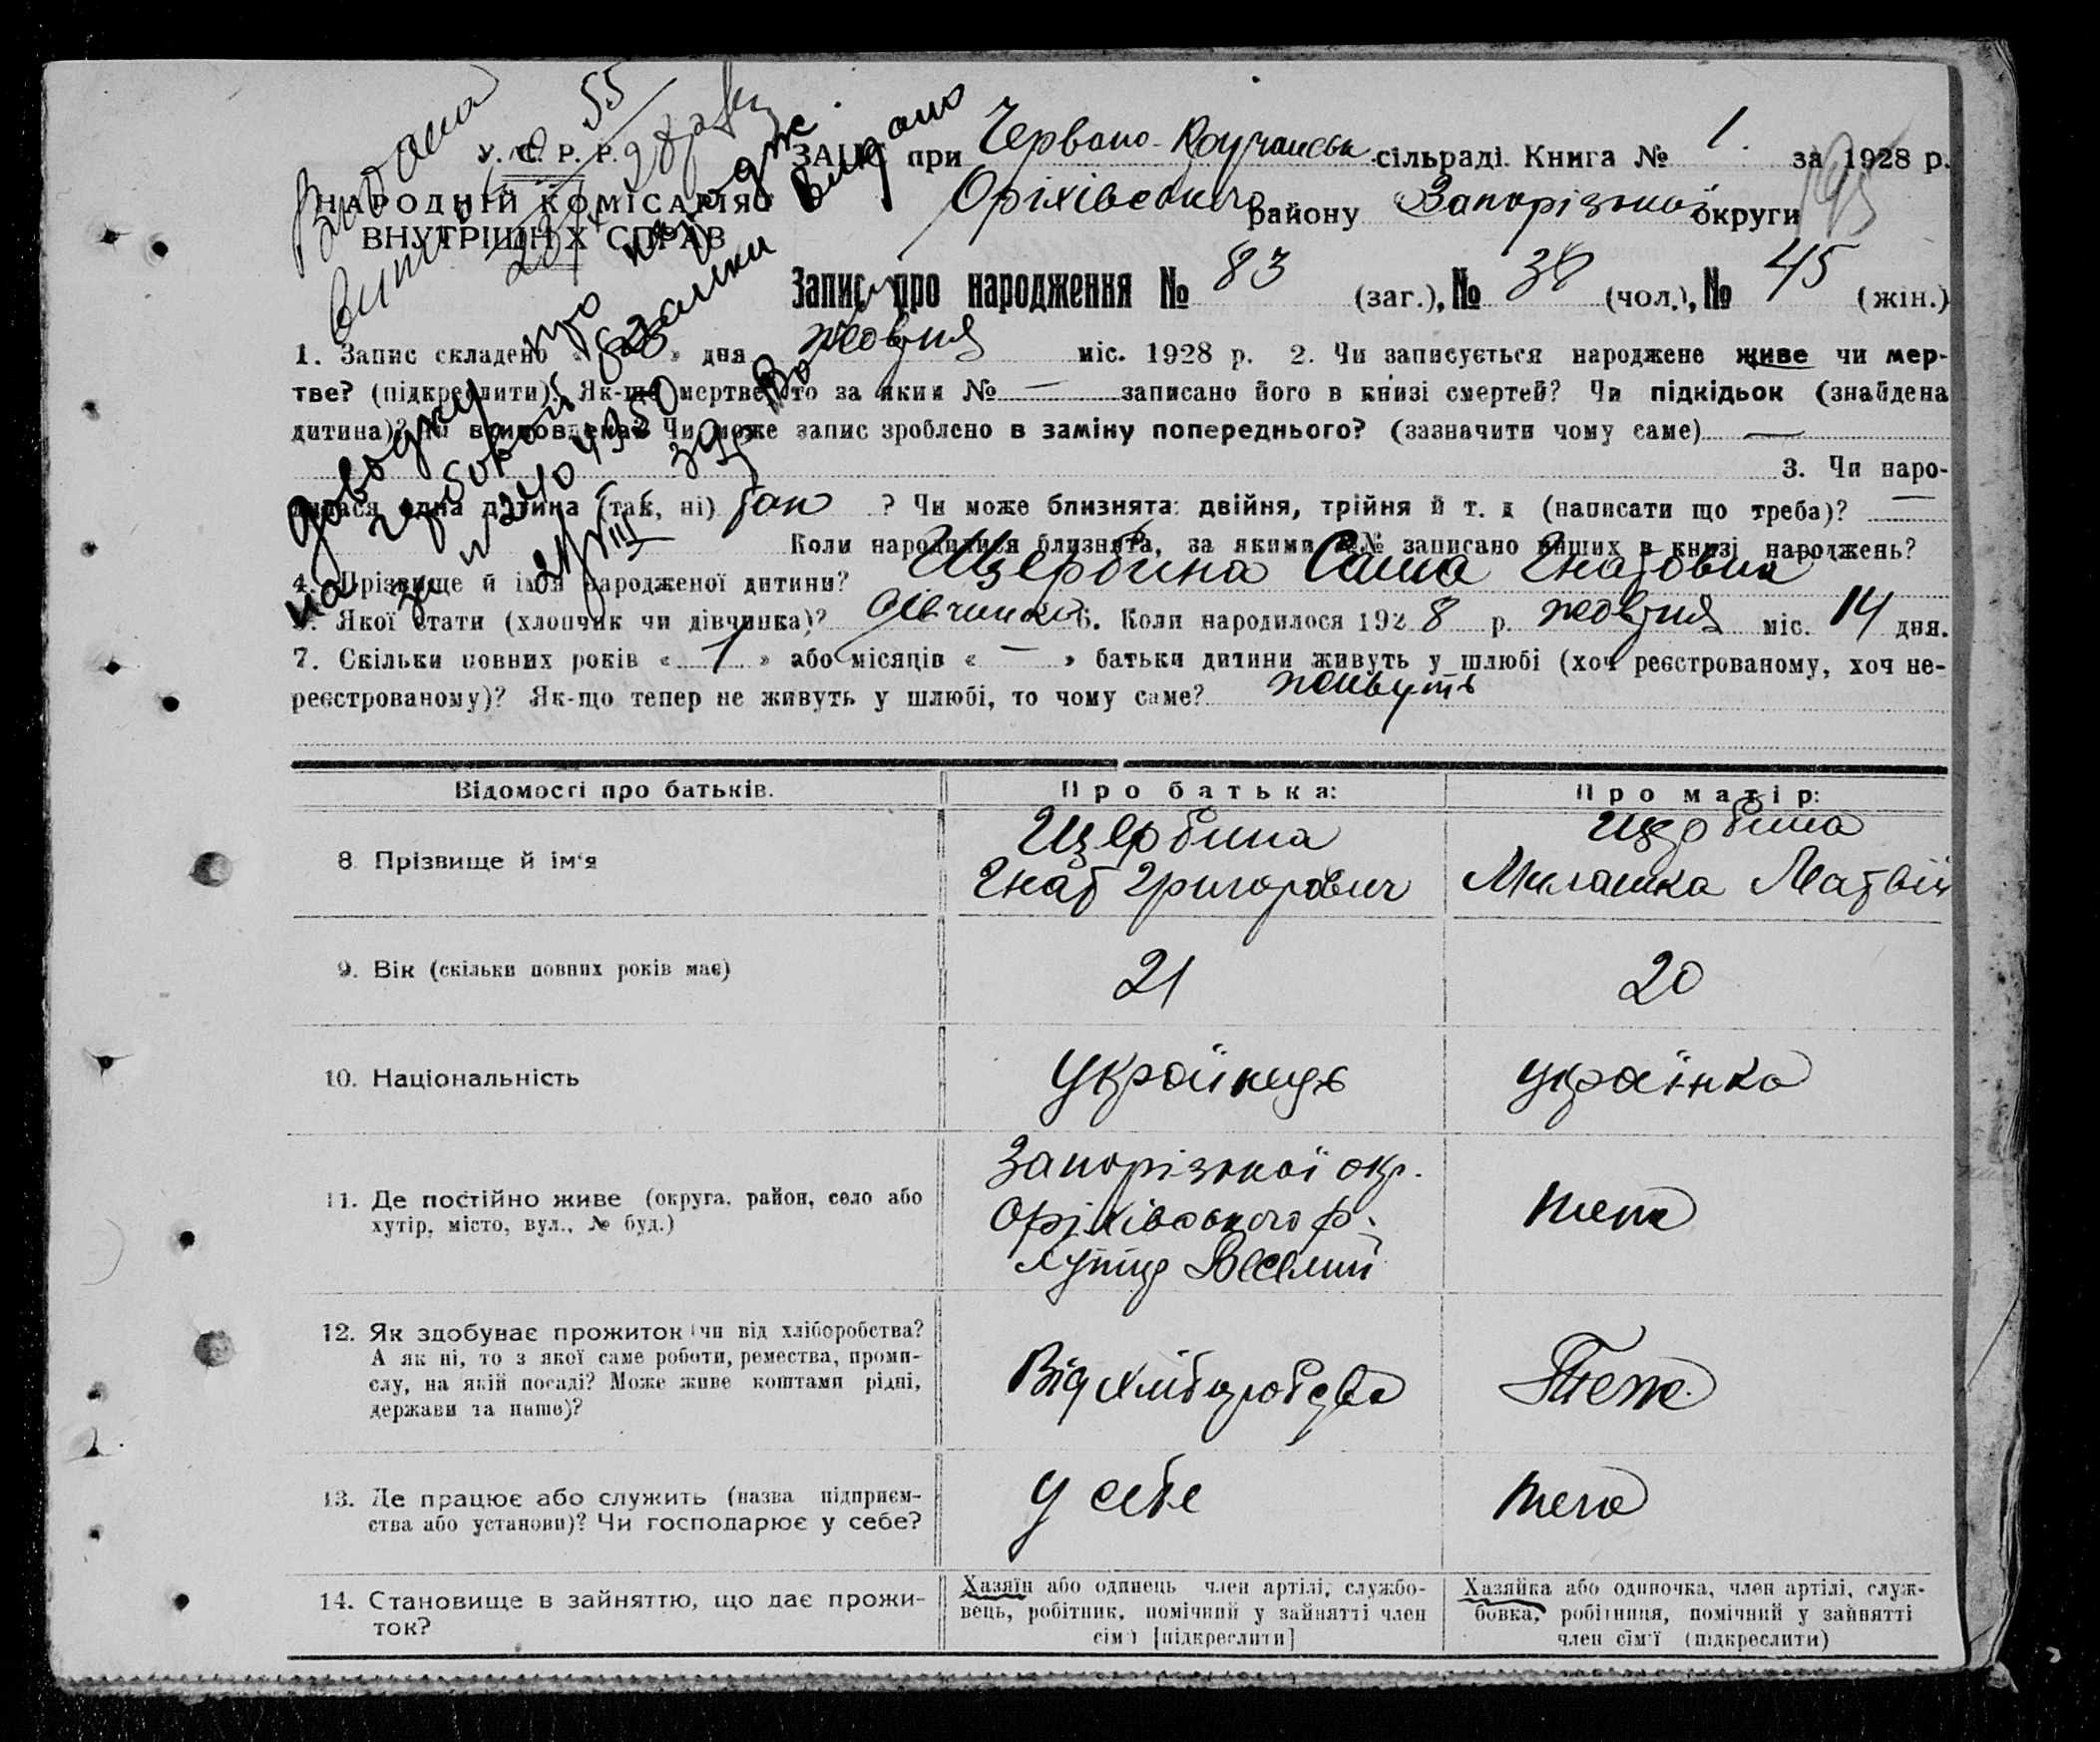 У. С. Р. Р.
НАРОДНІЙ КОМІСАРІЯТ
ВНУТРІШНІХ СПРАВ
Видана
55
Видано
ЗАПС при Червоно-Кручанськ сільраді. Книга № 1. за 1928 р.
Оріхівського району Запорізької округи
Запис про народження № 83 (заг.), № 38 (чол.), № 45 (жін.)
1. Запис складено « 23 » дня жовтня міс. 1928 р. 2. Чи записується народжене живе чи мер-
тве? (підкреслити). Як-що мертве, то за яким № — записано його в книзі смертей? Чи підкідьок (знайдена
дитина)? Чи може запис зроблено в заміну попереднього? (зазначити чому саме) —
3. Чи наро-
дилася одна дитина (так, ні) так ? Чи може близнята: двійня, трійня й т. д (написати що треба)? —
Коли народилися близнята, за якими №№ записано інших в книзі народжень?
4. Прізвище й ім'я народженої дитини? Щербина Саша Гнатовна
5. Якої стати (хлопчик чи дівчинка)? дівчинка 6. Коли народилося 1928 р. жовтня міс. 14 дня.
7. Скільки повних років « 1 » або місяців « — » батьки дитини живуть у шлюбі (хоч реєстрованому, хоч не-
реєстрованому)? Як-що тепер не живуть у шлюбі, то чому саме? живуть
Відомості про батьків. Про батька: Про матір:
8. Прізвище й ім'я Щербина Гнат Григорович Щербина Милашка Матвій
9. Вік (скільки повних років має) 21 20
10. Національність Українець українка
11. Де постійно живе (округа, район, село або
хутір, місто, вул., № буд.) Запорізької окр. Оріхівського р. хутір Веселий теж
12. Як здобуває прожиток (чи від хліборобства?
А як ні, то з якої саме роботи, ремества, проми-
слу, на якій посаді? Може живе коштами рідні,
держави та инше)? Від хліборобства Теж
13. Де працює або служить (назва підприєм-
ства або установи)? Чи господарює у себе? у себе теж
14. Становище в зайняттю, що дає прожи-
ток?
Хазяїн або одинець член артілі, службо-
вець, робітник, помічний у зайнятті член
сім'ї [підкреслити]
Хазяйка або одиночка, член артілі, служ-
бовка, робітниця, помічний у зайнятті
член сім'ї (підкреслити)